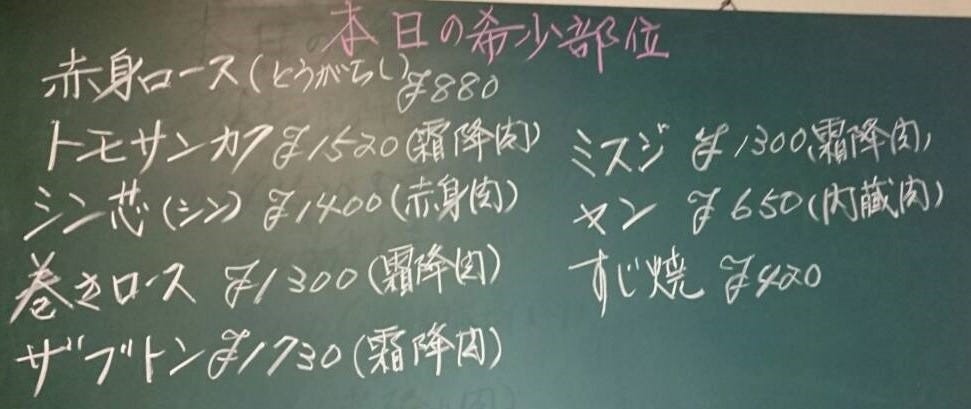 本日の希少部位
赤身ロース(とうがらし)¥880
トモサンカク ¥1520(霜降肉)
シン芯(シン) ¥1400(赤身肉)
巻きロース ¥1300(霜降肉)
ザブトン ¥1730(霜降肉)
ミスジ ¥1300(霜降肉)
ヤン ¥650(内蔵肉)
すじ焼 ¥420